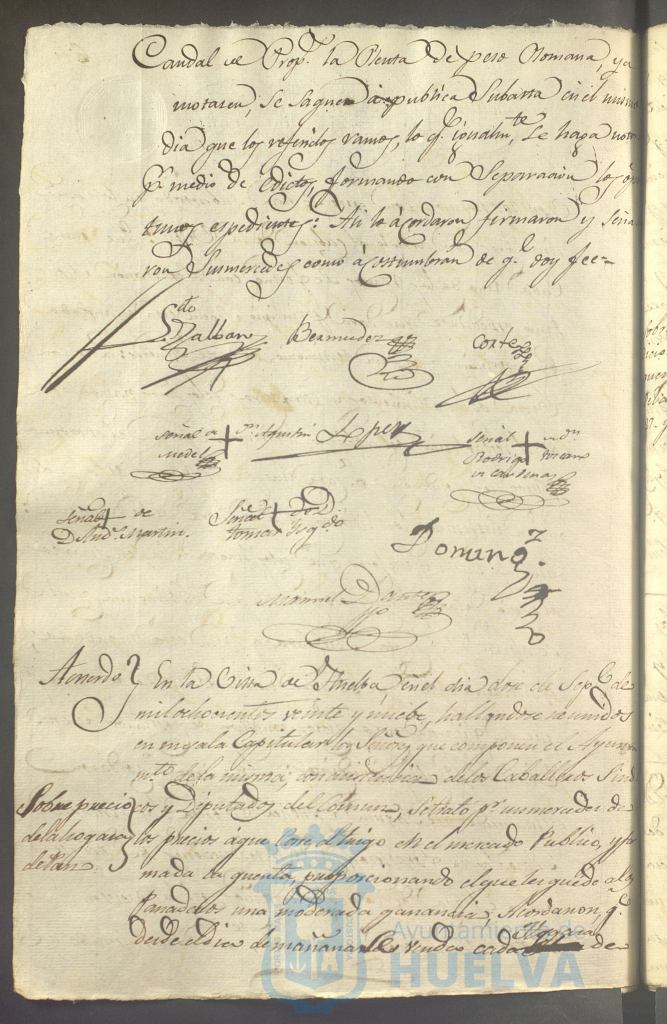 Caudal de Prop.s la Renta de peso Romana, y a
motasen, se saquen à publica Subasta en el mismo
dia que los referidos ramos, lo q.e igualm.te se haga notorio
p.r medio de edictos, formando con Separacion los opor
tunos espedientes: Asi lo àcordaron firmaron y seña
ron Sumercedes como àcostumbran de q.e doy fee=
Bermudez Cortes
Señal de + Agustin Lopez Señal +
Medel Rodrigo
de Cardenas
Señal + de Señal +
D. And.s Martin. Tomas
Doming.z
Manuel
Acuerdo En la Villa de Huelba en el dia doze de Sep.e de
mil ochocientos veinte y nuebe, hallandose reunidos
en su sala Capitular los Señores que componen el Ayunta
m.to de la misma, con asistencia de los Caballeros Sindi
Sobre precio cos y Diputados del Comun, se trató p.r sus mercedes de
de la hogaza los precios à que corre el trigo en el mercado Publico, y for
de Pan. mada la quenta, proporcionando el que les quede a los
Panaderos una moderada ganancia, Acordaron q.e
desde el dia de mañana se venda cada hogaza de
Ayuntamiento de
HUELVA